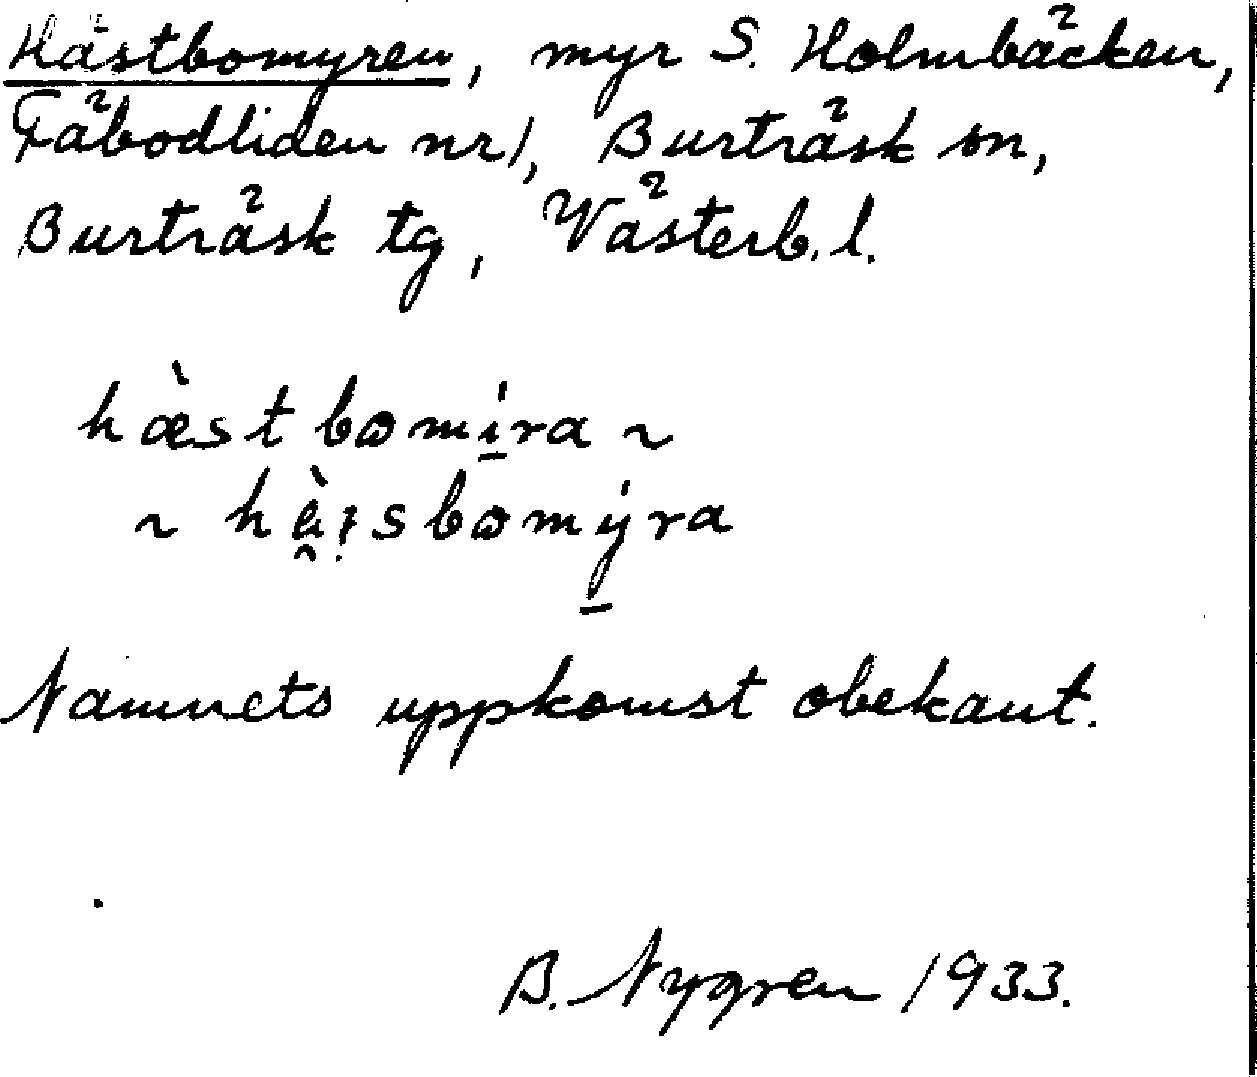 Hästbomyren, myr S. Holmbäcken,
Fäbodliden nr 1, Burträsk sn,
Burträsk tg, Västerb. l.
hæ̀stbωmí̱ra ~
~ hè̯ɪsbωmý̱ra
Namnets uppkomst obekant.
B. Nygren 1933.